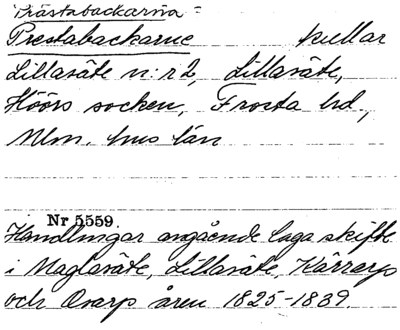 Prästabackarna =
Prestabackarne kullar
Lillasäte n:r 2, Lillasäte,
Höörs socken, Frosta hd.,
Mlm. hus län
Nr 5559
Handlingar angående laga skifte
i Maglasäte, Lillasäte, Kärrarp
och Orarp åren 1825-1839